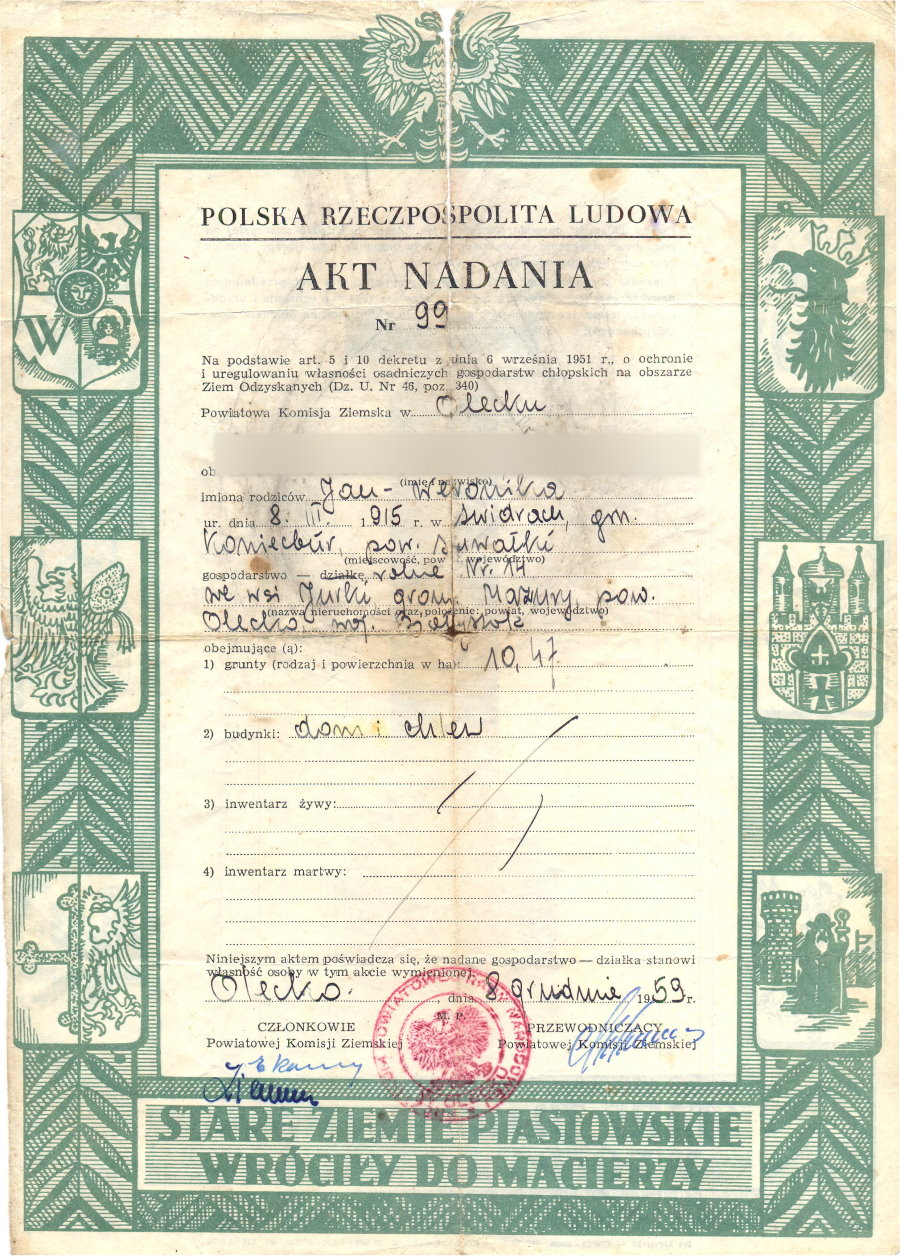 POLSKA RZECZPOSPOLITA LUDOWA
AKT NADANIA
Nr 99
Na podstawie art. 5 i 10 dekretu z dnia 6 września 1951 r., o ochronie
i uregulowaniu własności osadniczych gospodarstw chłopskich na obszarze
Ziem Odzyskanych (Dz. U. Nr 46, poz. 340)
Powiatowa Komisja Ziemska w Olecku
ob
(imię i nazwisko)
imiona rodziców Jan - Weronika
ur. dnia 8. III. 1915 r. w Świdrach, gm.
Koniecbór, pow. Suwałki
(miejscowość, pow., województwo)
gospodarstwo — działkę rolne Nr. 14
we wsi Jurki grom. Mazury, pow.
(nazwa nieruchomości oraz położenie; powiat, województwo)
Olecko, woj. Białystok
obejmujące (ą):
1) grunty (rodzaj i powierzchnia w ha): 10,47
2) budynki: dom i chlew
3) inwentarz żywy:
4) inwentarz martwy:
Niniejszym aktem poświadcza się, że nadane gospodarstwo — działka stanowi
własność osoby w tym akcie wymienionej.
Olecko, dnia 8 grudnia 1959 r.
M. P.
CZŁONKOWIE PRZEWODNICZĄCY
Powiatowej Komisji Ziemskiej Powiatowej Komisji Ziemskiej
STARE ZIEMIE PIASTOWSKIE
WRÓCIŁY DO MACIERZY